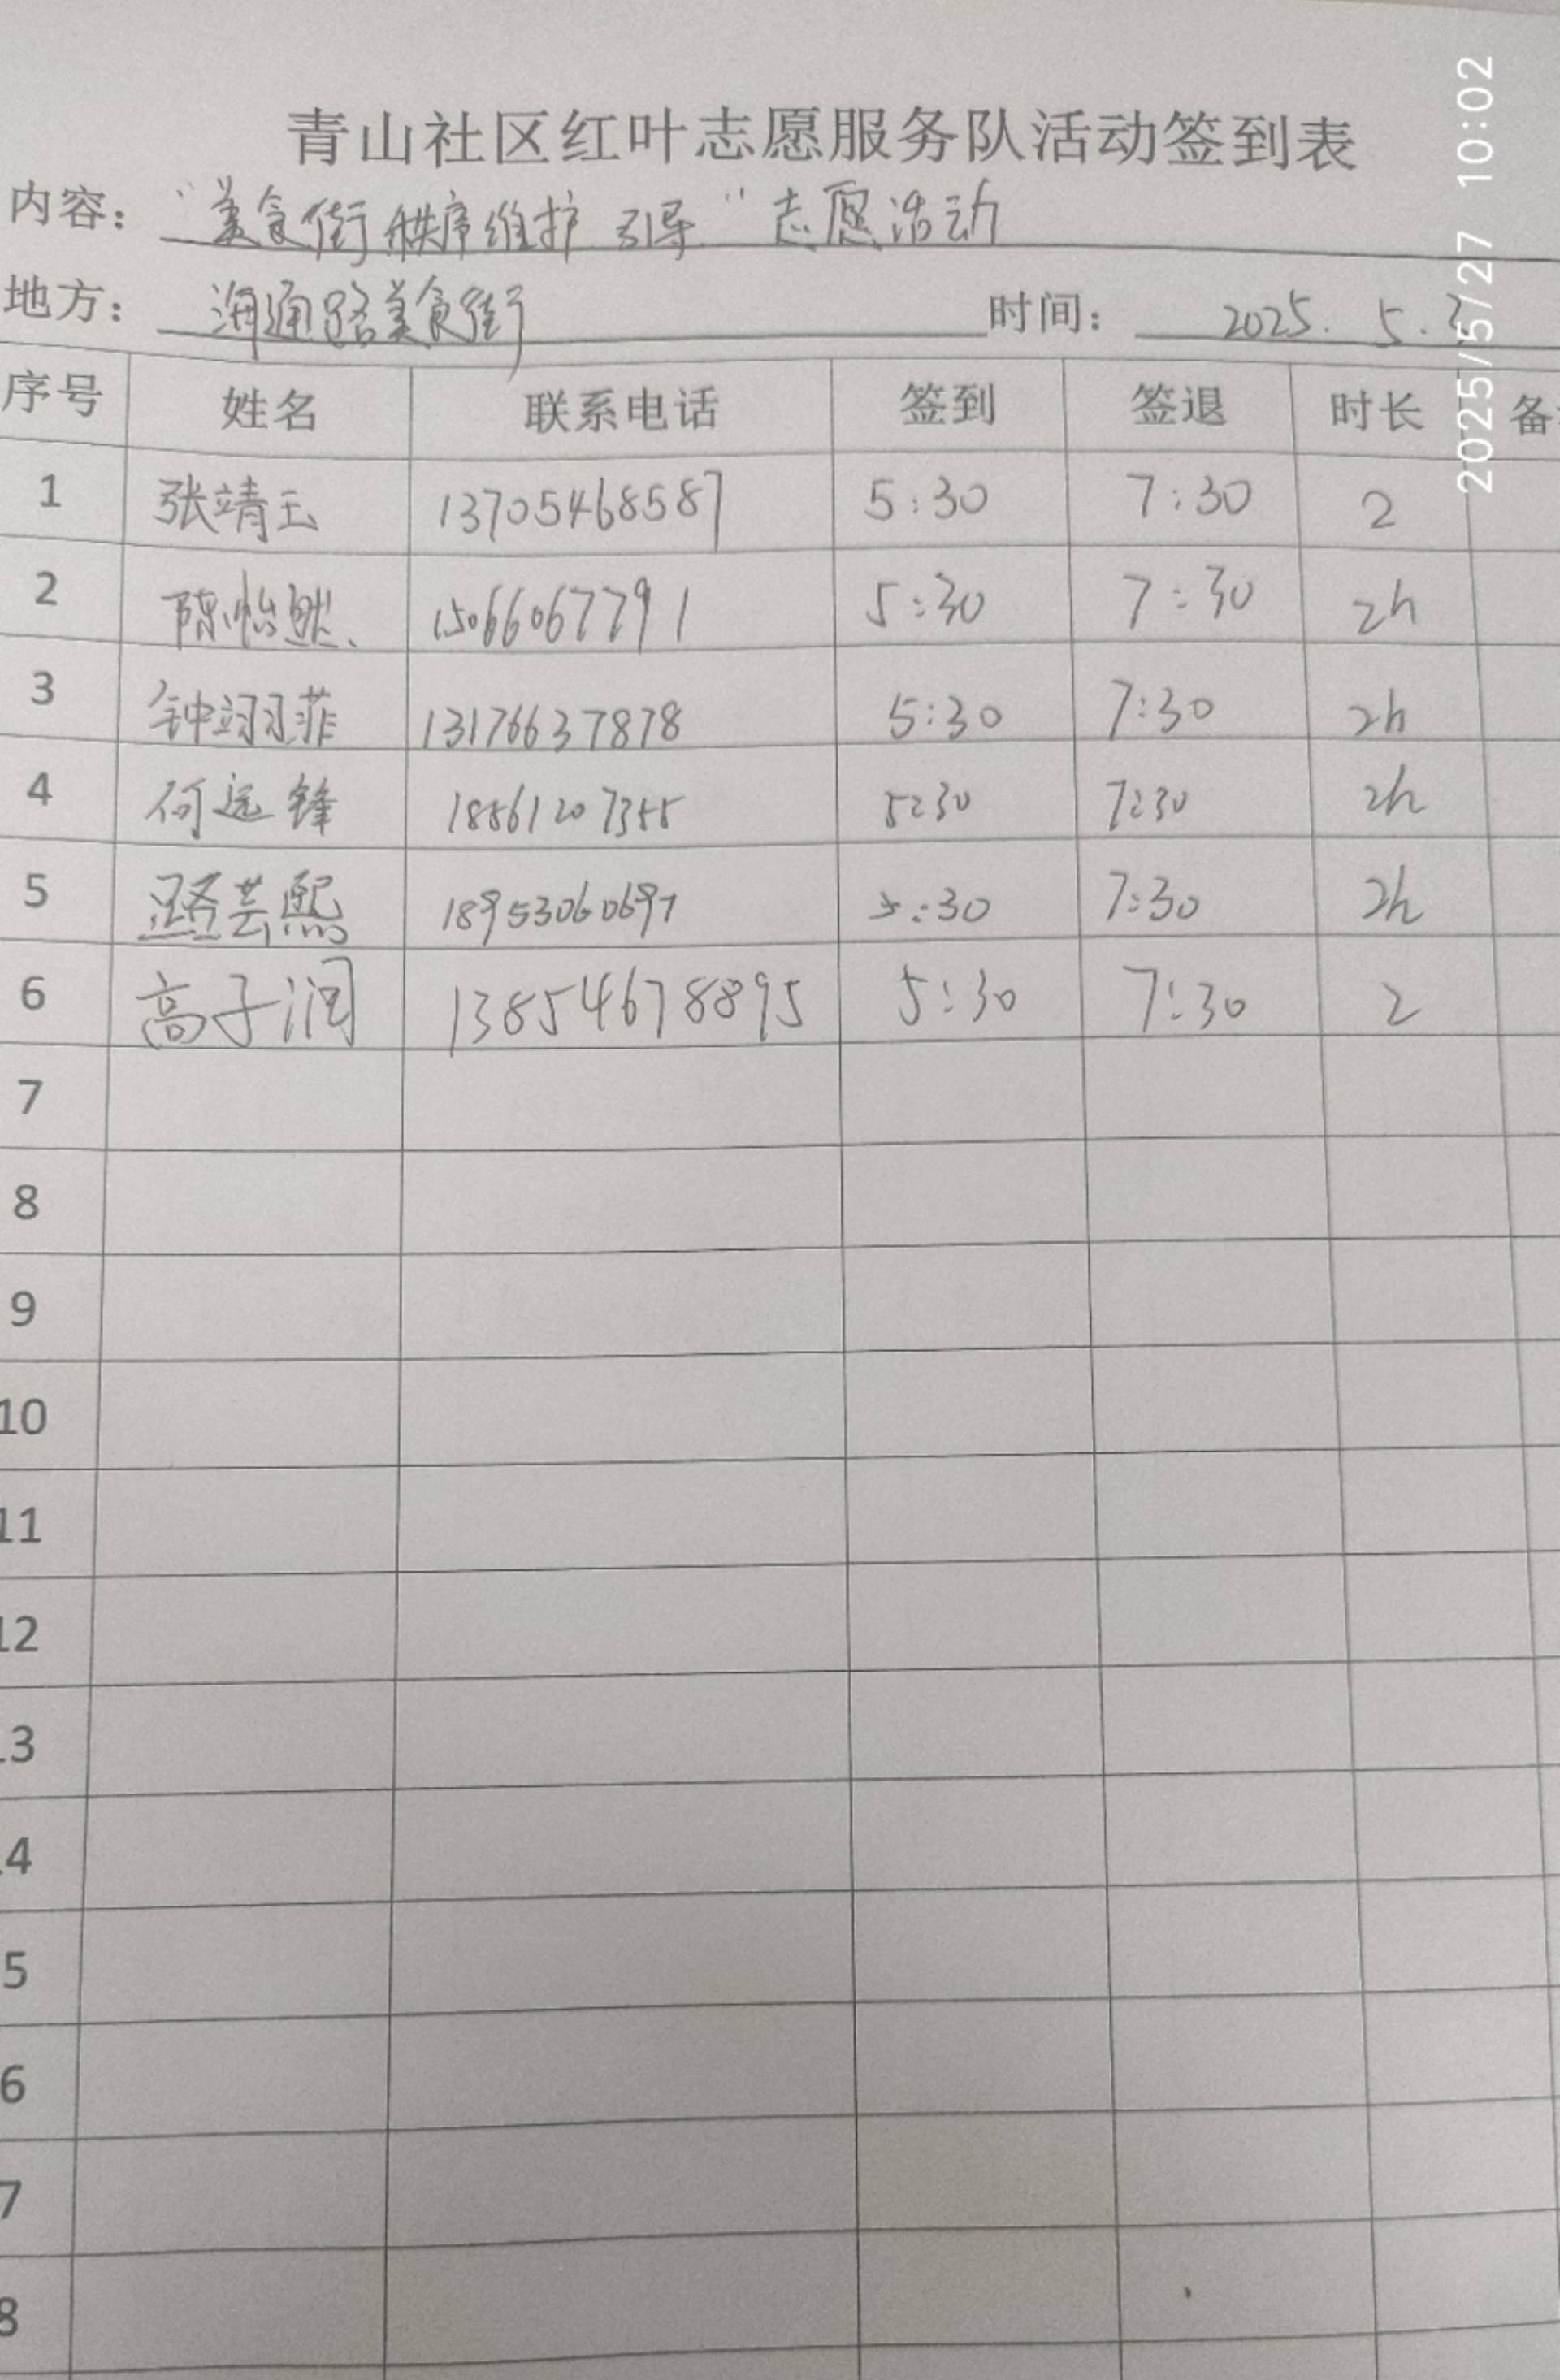 青山社区红叶志愿服务队活动签到表
内容： “美食街秩序维护 引导”志愿活动
地方： 海通路美食街 时间： 2025. 5.
序号 姓名 联系电话 签到 签退 时长 备
1 张靖玉 13705468587 5:30 7:30 2
2 陈怡然 15066067791 5:30 7:30 2h
3 钟翊菲 13176637878 5:30 7:30 2h
4 何远锋 18561207355 5:30 7:30 2h
5 路芸熙 18953060697 5:30 7:30 2h
6 高子润 13854678895 5:30 7:30 2
7
8
9
10
11
12
13
14
5
6
7
8
2025/5/27 10:02